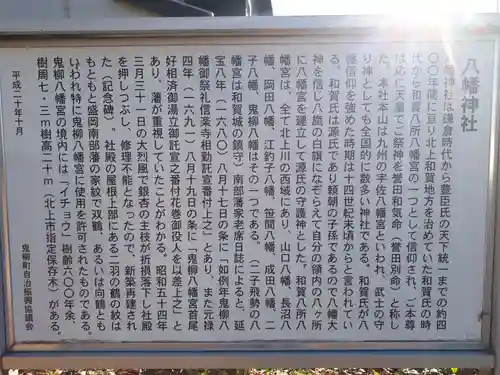 八幡神社
幡神社は鎌倉時代から豊臣氏の天下統一までの約四
〇〇年間に亘り北上和賀地方を治めていた和賀氏の時
代から和賀八所八幡宮の一つとして信仰され、ご本尊
は応に天皇でご祭神を誉田和気命（誉田別命）と称し
た。本社本山は九州の宇佐八幡宮といわれ、武士の守
り神としても全国的に数多い神社である。和賀氏が八
幡信仰を強めた時期は十四世紀末頃からと言われてい
る。和賀氏は源氏であり頼朝の子孫であるので八幡大
神を信じ八旒の白旗になぞらえて自分の領内の八ヶ所
に八幡宮を建立して源氏の守護神とした。和賀八所八
幡宮は、全て北上川の西域にあり、山口八幡、長沼八
幡、岡田八幡、江釣子八幡、笹間八幡、成田八幡、二
子八幡、鬼柳八幡はその一つである。（二子飛勢の八
幡宮は和賀城の鎮守）南部藩家老席日誌によると、延
宝八年（一六八〇）八月十七日の条に「如例年鬼柳八
幡御祭礼信楽寺相勤託宣番付上之」とあり、また元禄
四年（一六九一）八月十九日の条に「鬼柳八幡宮首尾
好相済御湯立御託宣之番付花巻御役人を以差上之」と
あり、藩が重視していたことがわかる。昭和五十四年
三月三十一日の大烈風で銀杏の主枝が折損落下し社殿
を押しつぶし、修理不能となったので、新築再建され
た（記念碑）。社殿の屋根上部にある二羽の鶴の紋は
もともと盛岡南部藩の家紋で双鶴、あるいは向鶴とも
いわれ特に鬼柳八幡宮に使用を許可されたものである。
鬼柳八幡宮の境内には「イチョウ」樹齢六〇〇年余、
樹周七・三m樹高二十m（北上市指定保存木）がある。
平成二十年十月
鬼柳町自治振興協議会